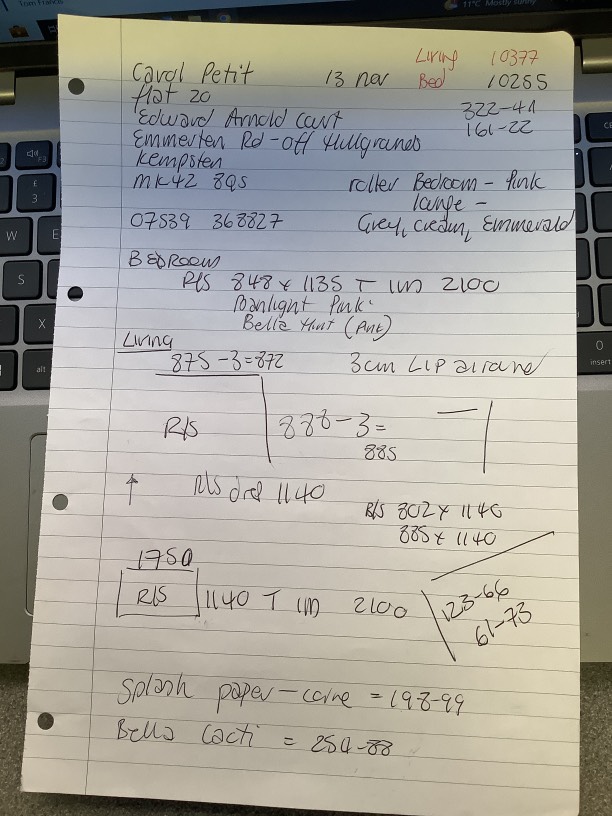 Living 10377
Carol Petit 13 nov Bed 10255
flat 20 322-41
Edward Arnold Cart 161-22
Emmerten Rd - off Hillgrands
Kempsten
MK42 8QS roller Bedroom - Pink
lounge -
07539 368827 Grey, cream, Emmerald
BEDROOM
R/S 848 x 1135 T 1M 2100
Banlight Pink
Bella (Ant)
Living
875 - 3 = 872 3cm LIP
R/S 888 - 3 =
885
↑ R/S drop 1140
R/S 802 x 1140
885 x 1140
1750
R/S 1140 T 1M 2100 123-66
61-73
Splash paper - = 198-99
Bella Cacti = 254-88
11°C Mostly sunny
W
E
£
3
S
X
alt
0
insert